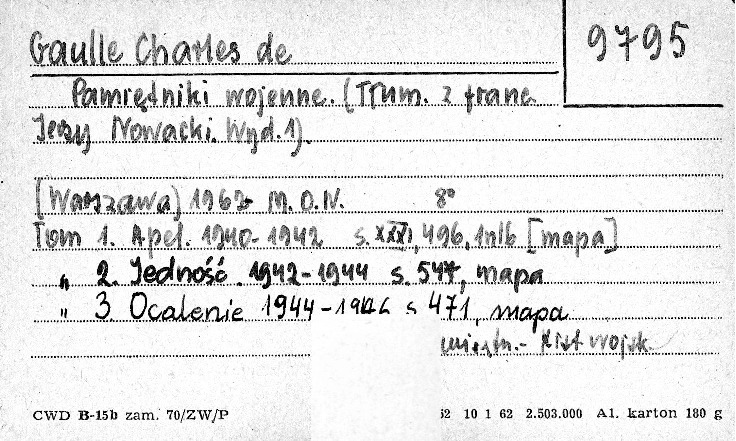 Gaulle Charles de
9795
Pamiętniki wojenne. (Tłum. z franc
Jerzy Nowacki. Wyd. 1).
[Warszawa) 1962 M.O.N. 8°
Tom 1. Apel. 1940-1942 s. XXXI, 496, 1 nlb [mapa]
" 2. Jedność. 1942-1944 s. 547, mapa
" 3 Ocalenie 1944-1946 s 471, mapa
wojsk.
CWD B-15b zam. 70/ZW/P 62 10 1 62 2.503.000 A1. karton 180 g